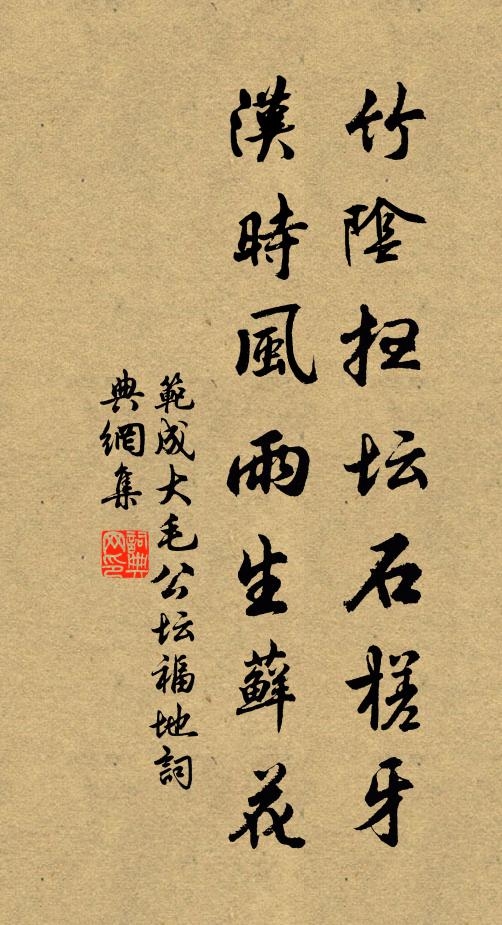 竹陰扫坛石槎牙
漢時風雨生蘚花
範成大毛公坛福地詞
典網集
詞典网印